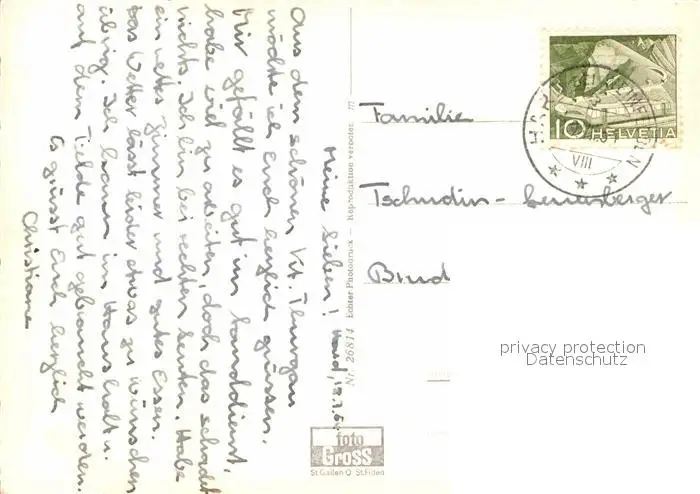 Meine Lieben!
Aus dem schönen Kt. Thurgau
möchte ich Euch herzlich grüssen.
Mir gefällt es gut im Landdienst,
habe viel zu arbeiten, doch das schadet
nichts. Ich bin bei rechten Leuten. Habe
ein nettes Zimmer und gutes Essen.
Das Wetter lässt leider etwas zu wünschen
übrig. Ich kann im Haushalt u.
auf dem Felde gut gebraucht werden.
Es grüsst Euch herzlich
Christiane
Nr. 26814 Echter Photodruck — Reproduktion verboten
foto
Gross
St. Gallen O St. Fiden
Familie
Tschudin-
Bind
10 HELVETIA
VIII
privacy protection
Datenschutz